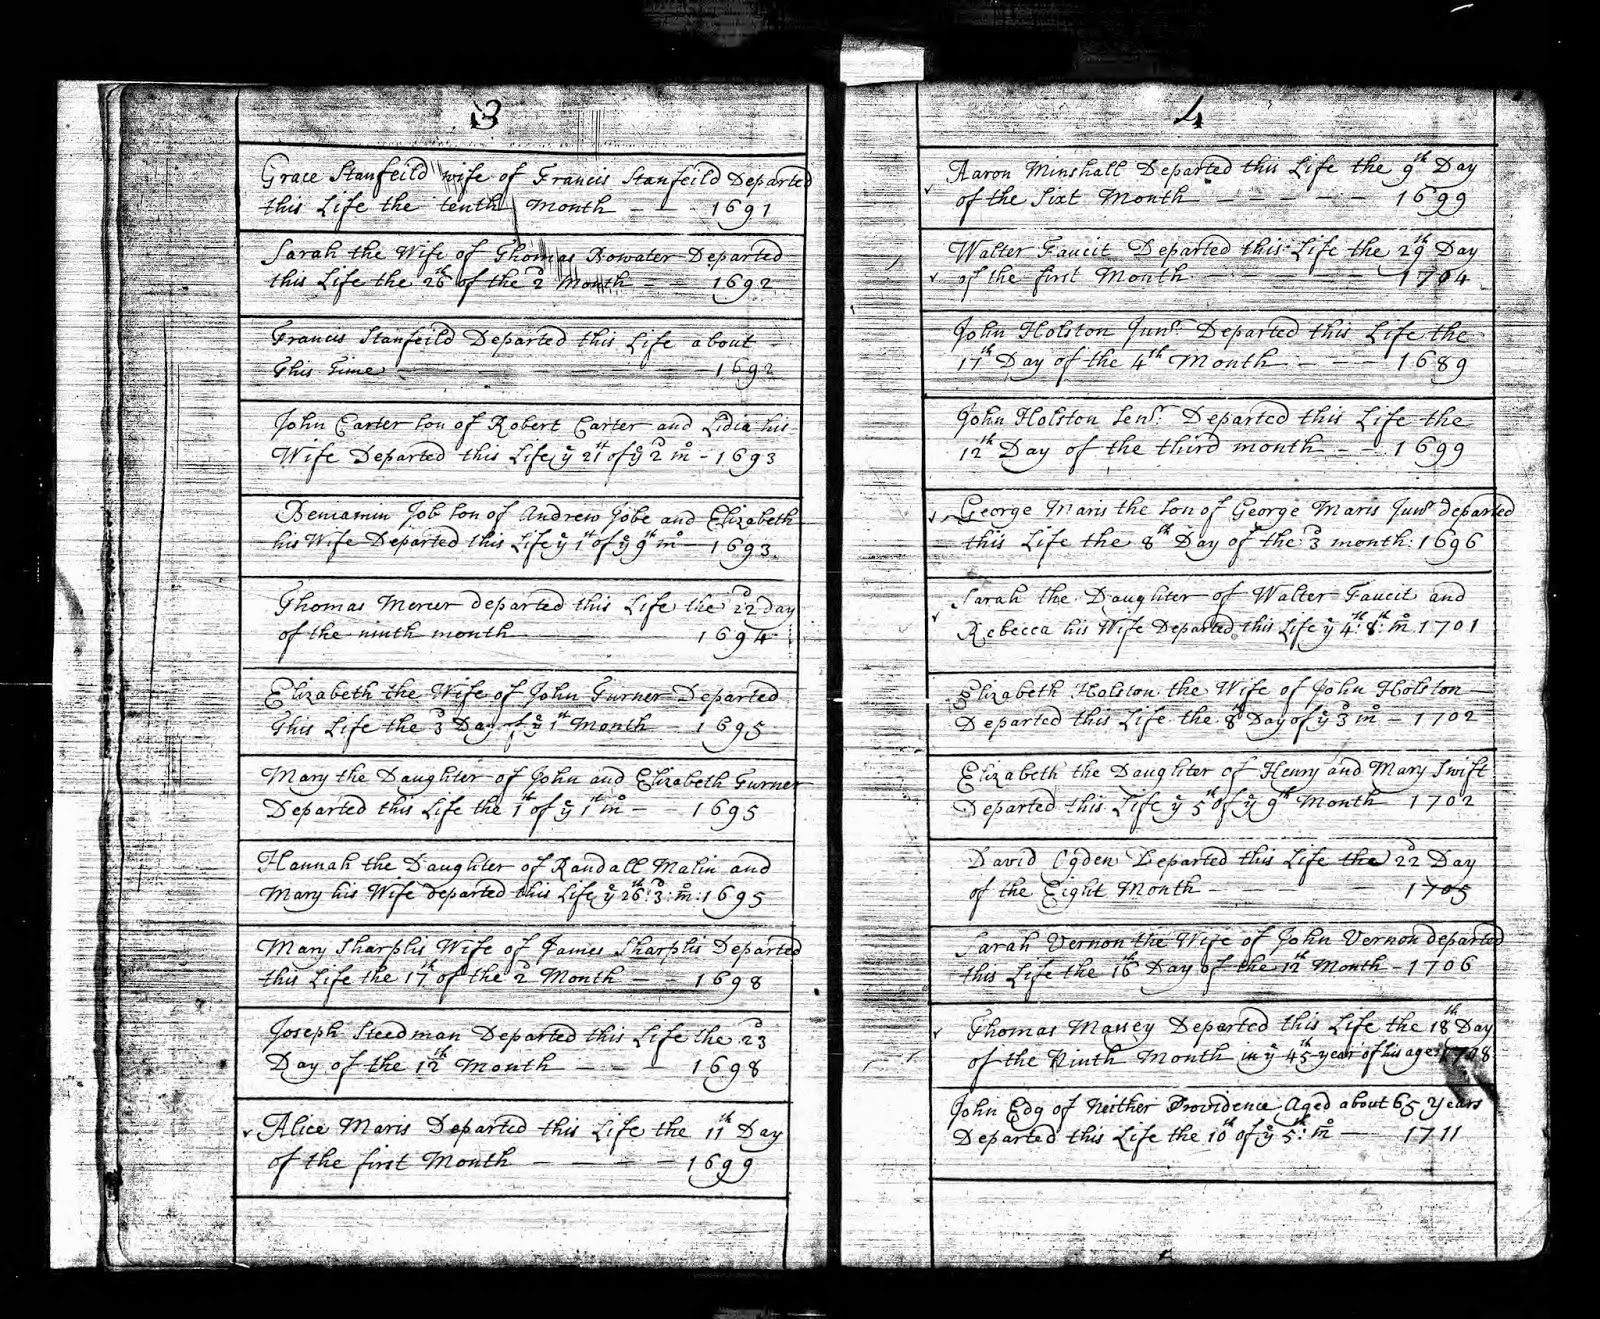 3
Grace Stanfeild wife of Francis Stanfeild Departed
this Life the tenth Month - - - 1691
Sarah the Wife of Thomas Bowater Departed
this Life the 26th of the 2d Month - - 1692
Francis Stanfeild Departed this Life about
This Time - - - - - - - - 1692
John Carter son of Robert Carter and Lidia his
Wife Departed this Life ye 21st of ye 2d mo - 1693
Beniamin Job son of Andrew Jobe and Elizabeth
his Wife Departed this Life ye 1st of ye 9th mo - 1693
Thomas Mercer departed this Life the 22d day
of the ninth month - - - 1694
Elizabeth the Wife of John Turner Departed
This Life the 3d Day of ye 1st Month - 1695
Mary the Daughter of John and Elizabeth Turner
Departed this Life the 1st of ye 1st mo - - 1695
Hannah the Daughter of Randall Malin and
Mary his Wife departed this Life ye 26th: 3d: mo: 1695
Mary Sharplis Wife of James Sharplis Departed
this Life the 17th of the 2d Month - - 1698
Joseph Steedman Departed this Life the 23d
Day of the 12th Month - - - 1698
Alice Maris Departed this Life the 11th Day
of the first Month - - - - 1699
4
Aaron Minshall Departed this Life the 9th Day
of the Sixt Month - - - - - 1699
Walter Faucit Departed this Life the 29th Day
of the first Month - - - - 1704
John Holston Junr. Departed this Life the
17th Day of the 4th Month - - - 1689
John Holston Senr. Departed this Life the
12th Day of the third month - - 1699
George Maris the son of George Maris Junr departed
this Life the 8th Day of the 3d month: 1696
Sarah the Daughter of Walter Faucit and
Rebecca his Wife Departed this Life ye 4th: 8th: mo 1701
Elizabeth Holston the Wife of John Holston -
Departed this Life the 8th Day of ye 3d mo - 1702
Elizabeth the Daughter of Henry and Mary Swift
Departed this Life ye 5th of ye 9th Month 1702
David Ogden Departed this Life the 22d Day
of the Eight Month - - - - - 1705
Sarah Vernon the Wife of John Vernon departed
this Life the 16th Day of the 12th Month - 1706
Thomas Massey Departed this Life the 18th Day
of the Ninth Month in ye 45th year of his age: 1708
John Edg of Neither Providence Aged about 65 Years
Departed this Life the 10th of ye 5th: mo - 1711